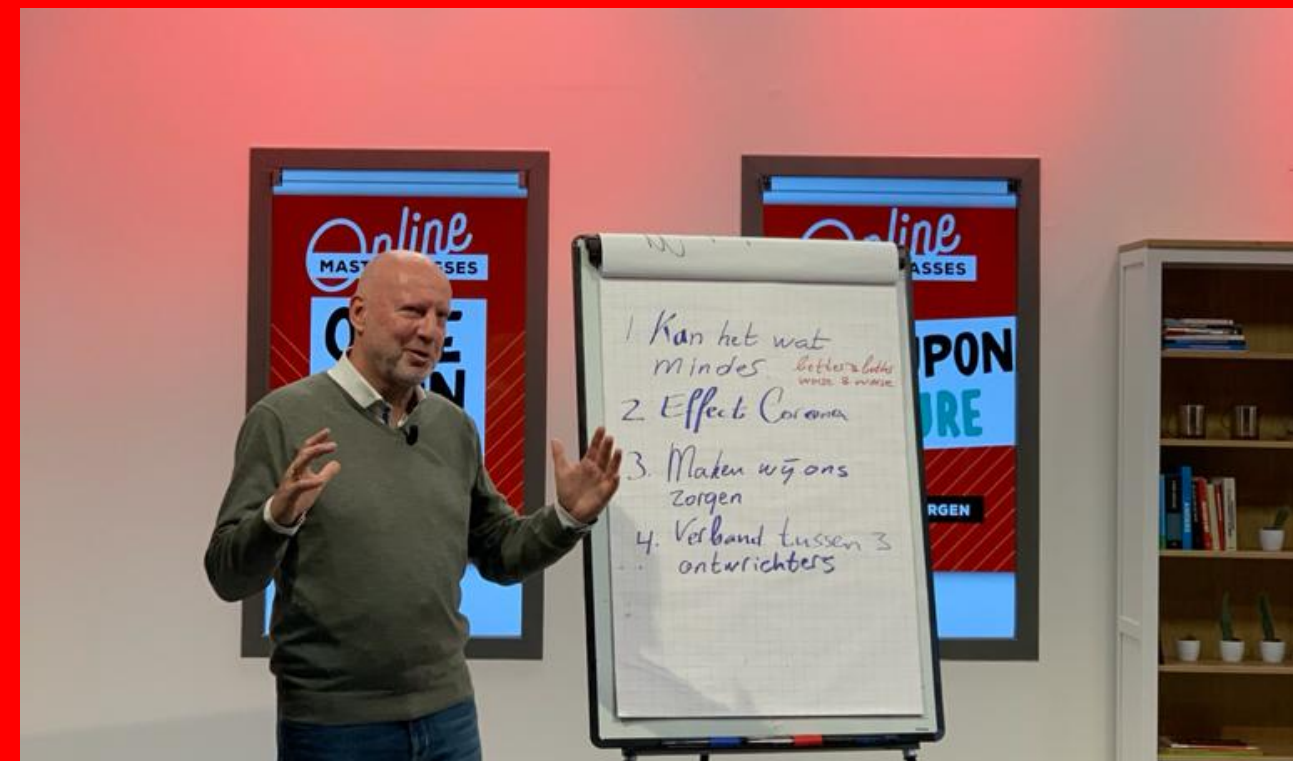 Online
MAST SSES
O E
Online
ASSES
UPON
URE
RGEN
1 Kan het wat
minder
better & better
worse & worse
2 Effect Corona
3. Maken wij ons
zorgen
4. Verband tussen 3
ontwrichters